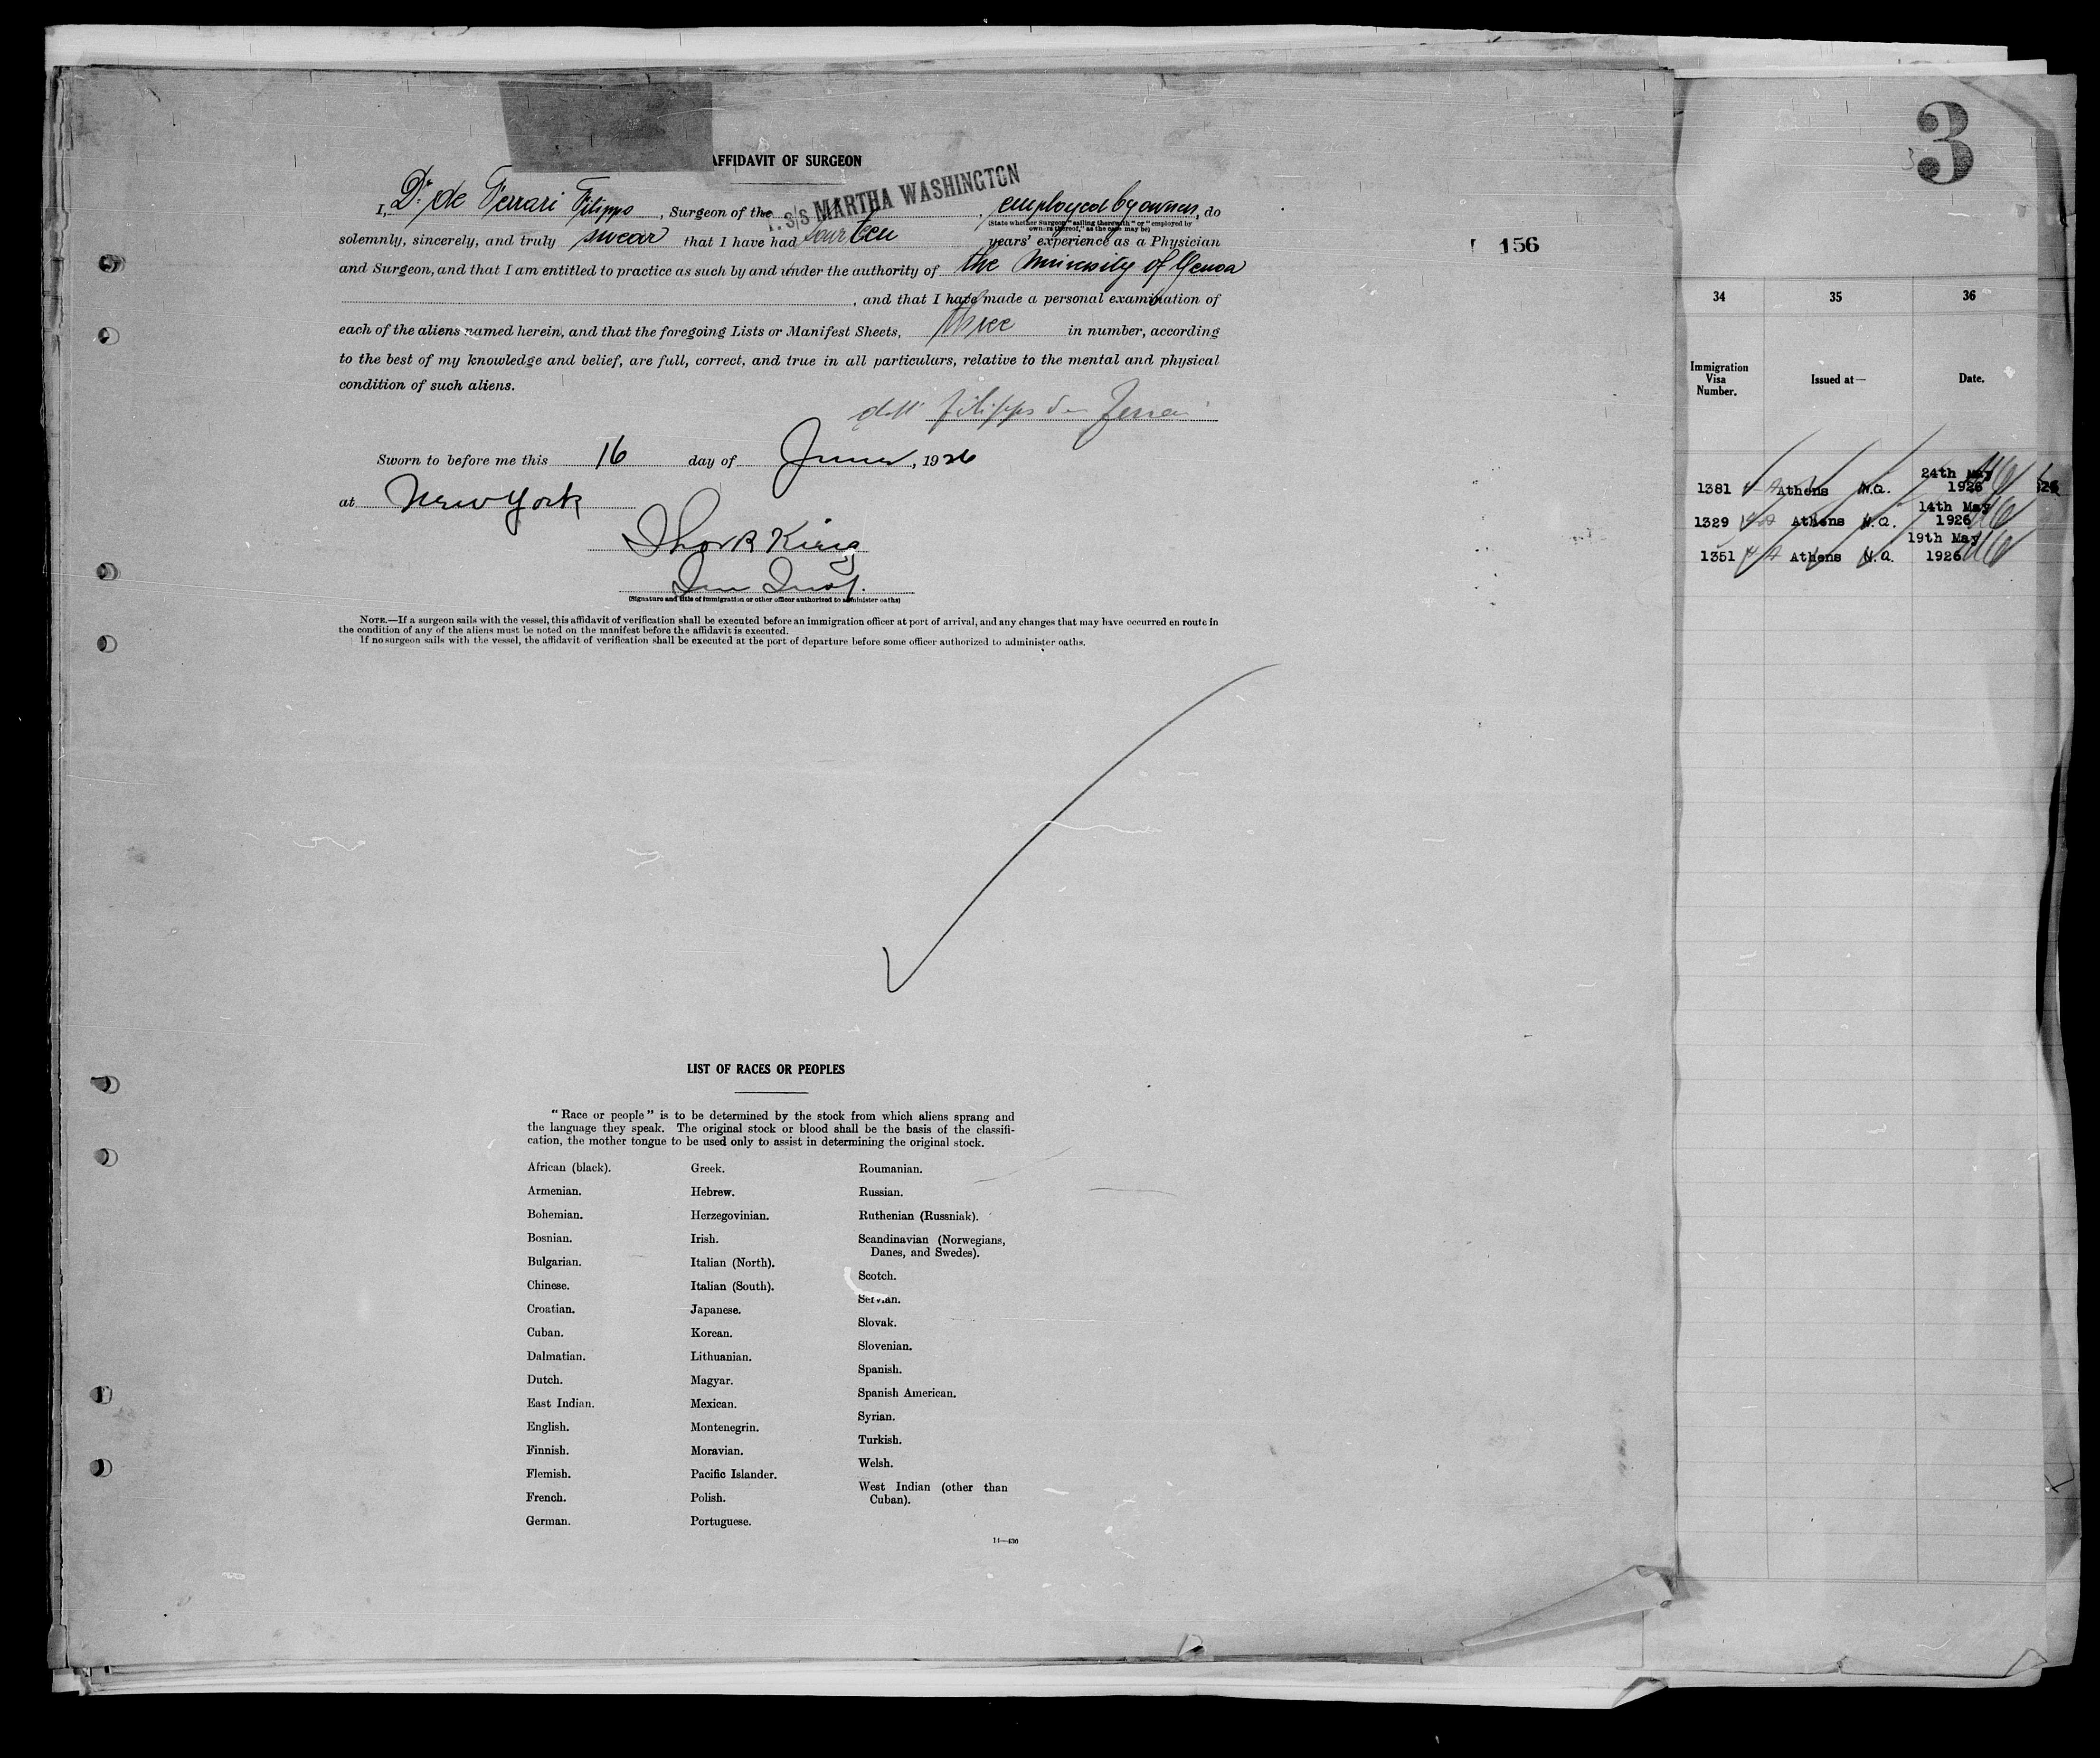 AFFIDAVIT OF SURGEON
I, Dr. de Ferrari Filippo, Surgeon of the S/S MARTHA WASHINGTON, employed by owners, do
(State whether Surgeon "sailing therewith" or "employed by
owners thereof," as the case may be)
solemnly, sincerely, and truly swear that I have had fourteen years' experience as a Physician
and Surgeon, and that I am entitled to practice as such by and under the authority of the University of Genoa
, and that I have made a personal examination of
each of the aliens named herein, and that the foregoing Lists or Manifest Sheets, three in number, according
to the best of my knowledge and belief, are full, correct, and true in all particulars, relative to the mental and physical
condition of such aliens.
dott Filippo de Ferrari
Sworn to before me this 16 day of June, 1926
at New York
King
(Signature and title of immigration or other officer authorized to administer oaths)
NOTE.—If a surgeon sails with the vessel, this affidavit of verification shall be executed before an immigration officer at port of arrival, and any changes that may have occurred en route in
the condition of any of the aliens must be noted on the manifest before the affidavit is executed.
If no surgeon sails with the vessel, the affidavit of verification shall be executed at the port of departure before some officer authorized to administer oaths.
LIST OF RACES OR PEOPLES
"Race or people" is to be determined by the stock from which aliens sprang and
the language they speak. The original stock or blood shall be the basis of the classifi-
cation, the mother tongue to be used only to assist in determining the original stock.
African (black).
Armenian.
Bohemian.
Bosnian.
Bulgarian.
Chinese.
Croatian.
Cuban.
Dalmatian.
Dutch.
East Indian.
English.
Finnish.
Flemish.
French.
German.
Greek.
Hebrew.
Herzegovinian.
Irish.
Italian (North).
Italian (South).
Japanese.
Korean.
Lithuanian.
Magyar.
Mexican.
Montenegrin.
Moravian.
Pacific Islander.
Polish.
Portuguese.
Roumanian.
Russian.
Ruthenian (Russniak).
Scandinavian (Norwegians,
Danes, and Swedes).
Scotch.
Servian.
Slovak.
Slovenian.
Spanish.
Spanish American.
Syrian.
Turkish.
Welsh.
West Indian (other than
Cuban).
14—430
156
3
34 35 36
Immigration
Visa
Number.
Issued at—
Date.
24th May
1381 Athens N.Q. 1926
14th May
1329 Athens N.Q. 1926
19th May
1351 Athens N.Q. 1926